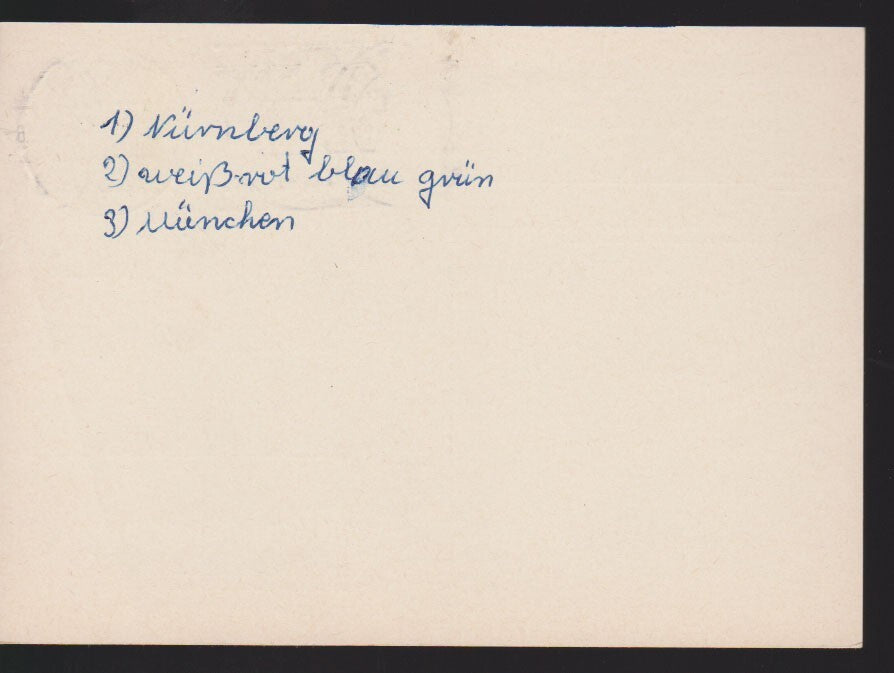 1) Nürnberg
2) weißrot blau grün
3) München